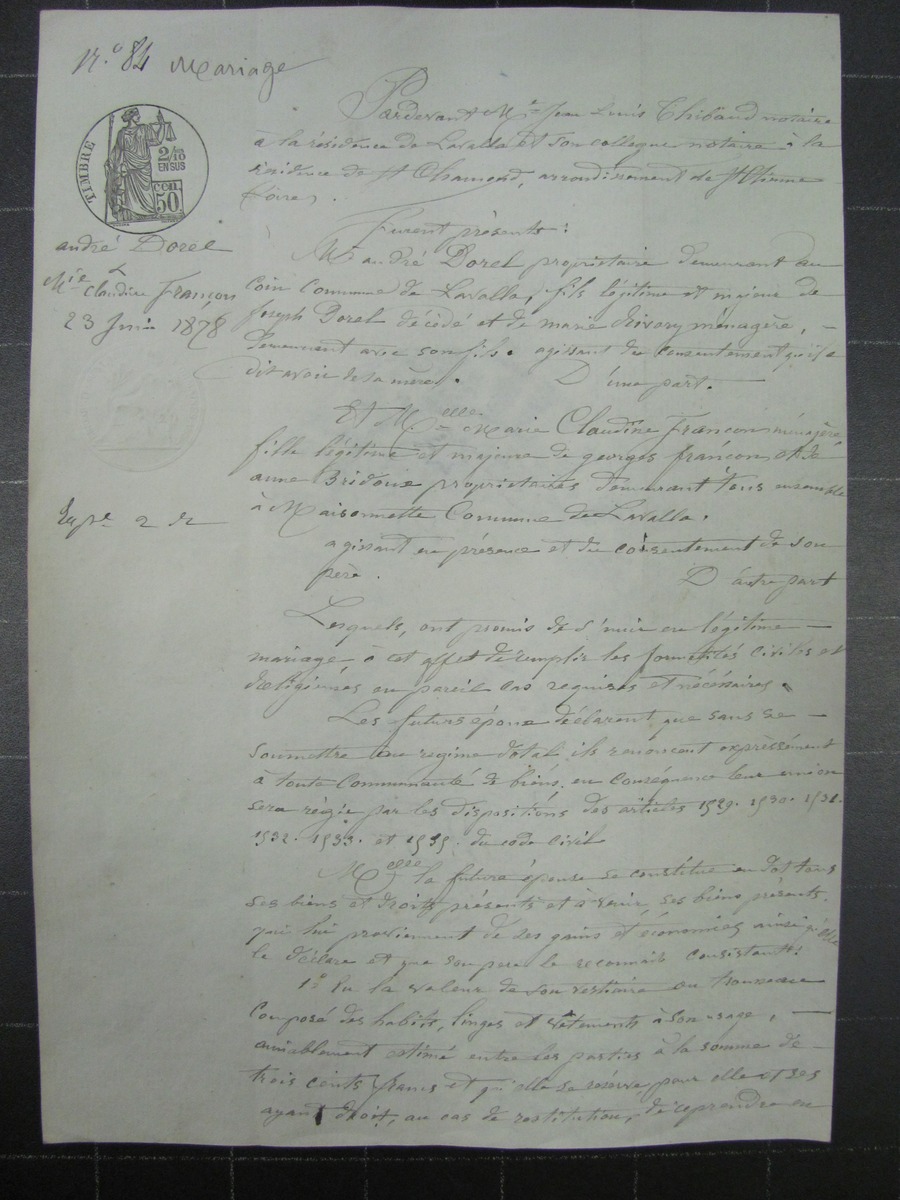 N.° 84 Mariage
TIMBRE
2/10
EN SUS
50 cen
andré Dorel
&
Mie Claudine Françon
23 Juin 1878
Expre 2 Rx
Pardevant Me Jean Louis Thibaud notaire
à la résidence de Lavalla et son collègue notaire à la
résidence de St Chamond, arrondissement de St Etienne
Loire.
Furent présents:
Mr andré Dorel propriétaire demeurant au
Coin Commune de Lavalla, fils légitime et majeur de
Joseph Dorel décédé et de marie Rivory ménagère, —
demeurant avec son fils. agissant du consentement qu'il a
dit avoir de sa mère. D'une part.
Et Melle Marie Claudine Françon ménagère
fille légitime et majeure de georges françon et de
anne Bridoux propriétaires demeurant tous ensemble
à Maisonnette Commune de Lavalla.
agissant en présence et du consentement de son
père. D'autre part
Lesquels, ont promis de s'unir en légitime —
mariage à cet effet de remplir les formalités civiles et
Religieuses en pareil cas requises et nécéssaires.
Les futurs époux déclarent que sans se —
soumettre au regime dotal ils renoncent expréssément
à toute Communauté de biens. en conséquence leur union
sera régie par les dispositions des articles 1529. 1530. 1531.
1532. 1533. et 1535. du code civil
la future épouse se constitue en dot tous
ses biens et droits présents et à venir, ses biens présents.
qui lui proviennent de ses gains et économies ainsi qu'elle
le déclare et que son père le reconnait consistant:
1° En la valeur de son vestiaire ou trousseau
Composé des habits, linges et vêtements à son usage, —
amiablement estimé entre les parties à la somme de —
trois cents francs et qu'elle se réserve pour elle et ses
ayant droit, au cas de restitution, de reprendre en